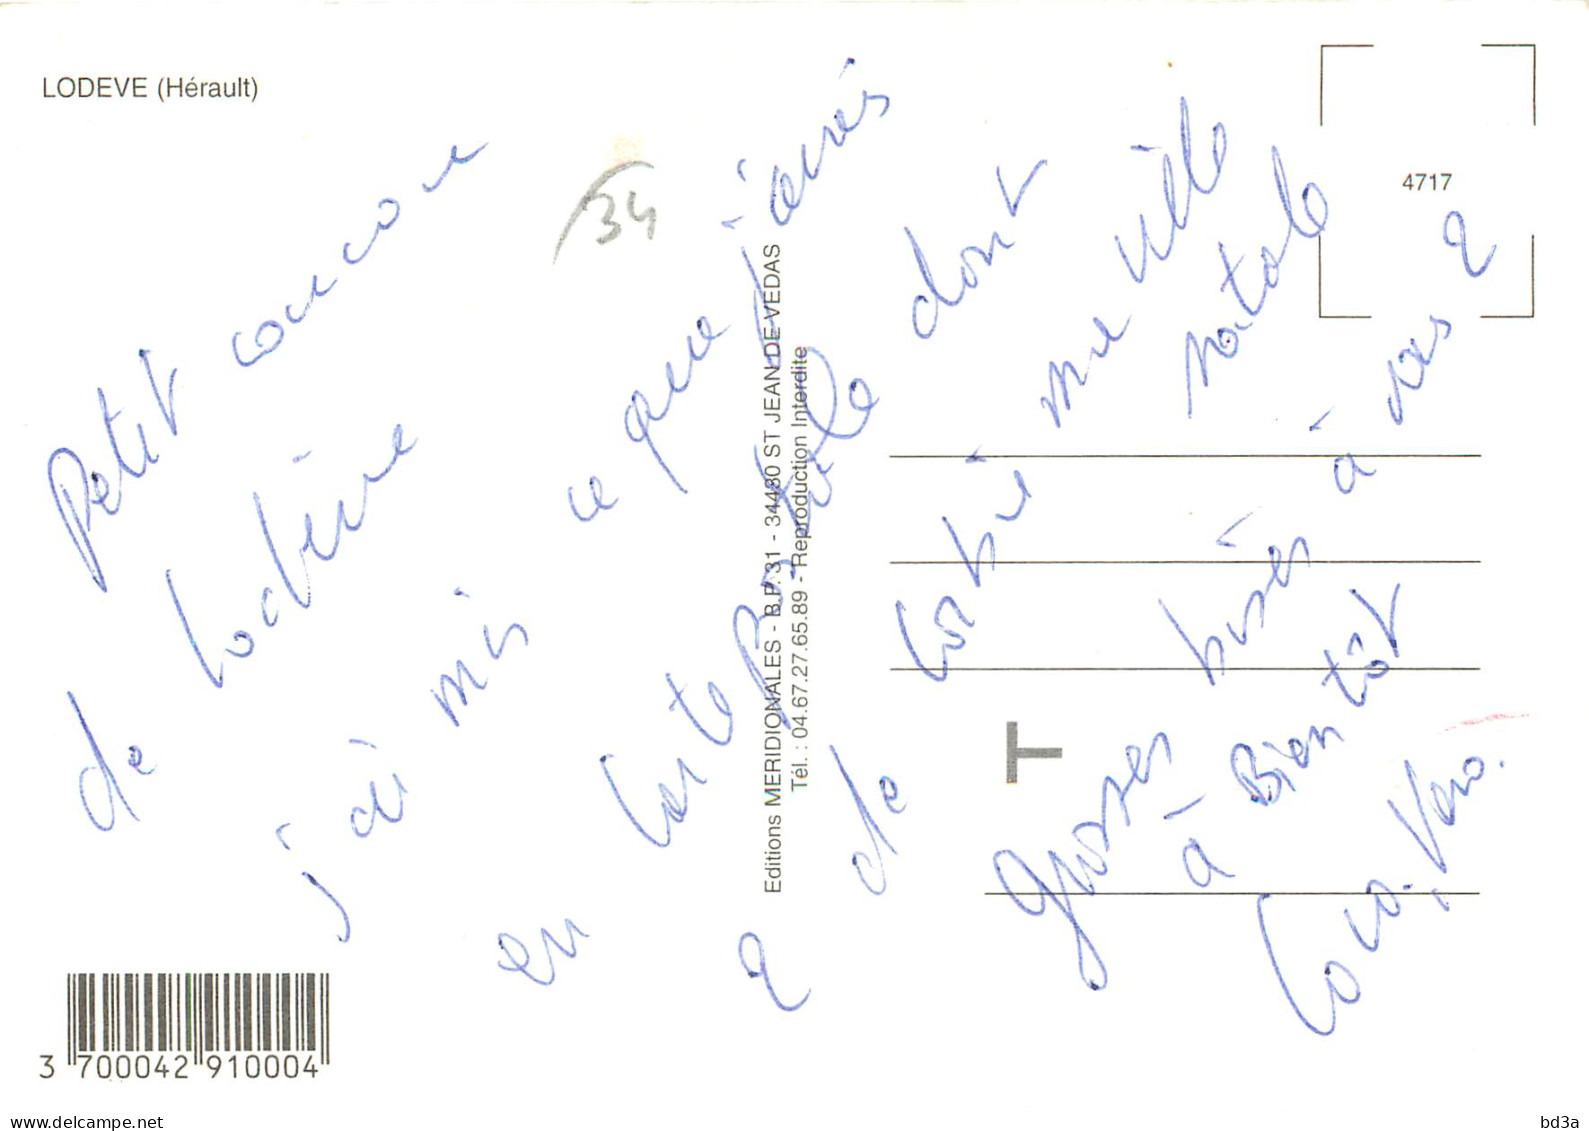 LODEVE (Hérault)
34
4717
Petit coucou
de Lodève
j'ai mis ce que j'aurés
en carte Bstale dont
2 de Corbie me ville
natale
grosses bises à vos 2
à Bientôt
Coco. Véro.
Editions MERIDIONALES - B.P. 31 - 34430 ST JEAN DE VEDAS
Tél. : 04.67.27.65.89 - Reproduction Interdite
T
3 700042 910004
www.delcampe.net
bd3a